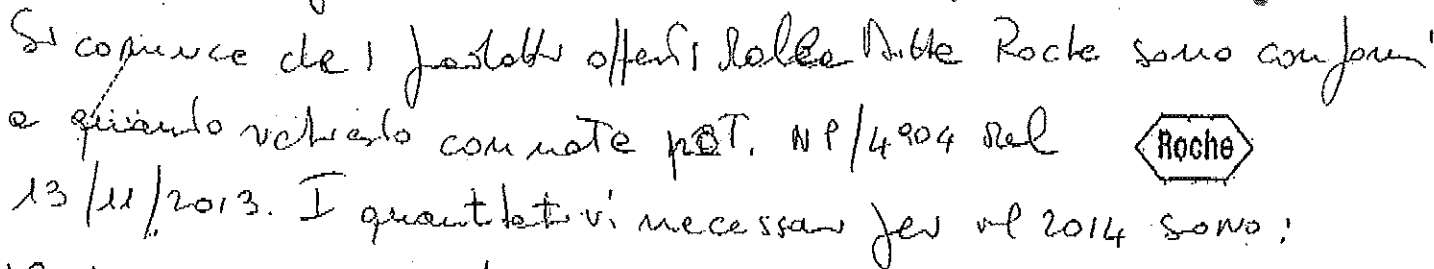 Si comunica che i prodotti offerti dalla Ditta Roche sono conformi
a quanto richiesto con nota prot. NP/4904 del
Roche
13/11/2013. I quantitativi necessari per il 2014 sono: